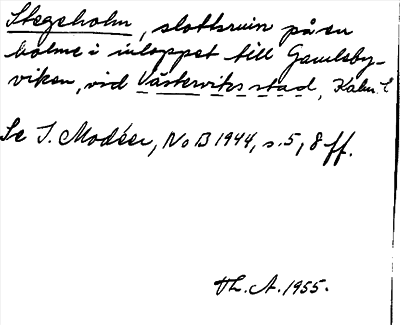 Stegeholm, slottsruin på en
holme i inloppet till Gamleby-
viken, vid Västerviks stad, Kalm. l
Se I. Modéer, NoB 1944, s. 5, 8 ff.
Th. A. 1955.